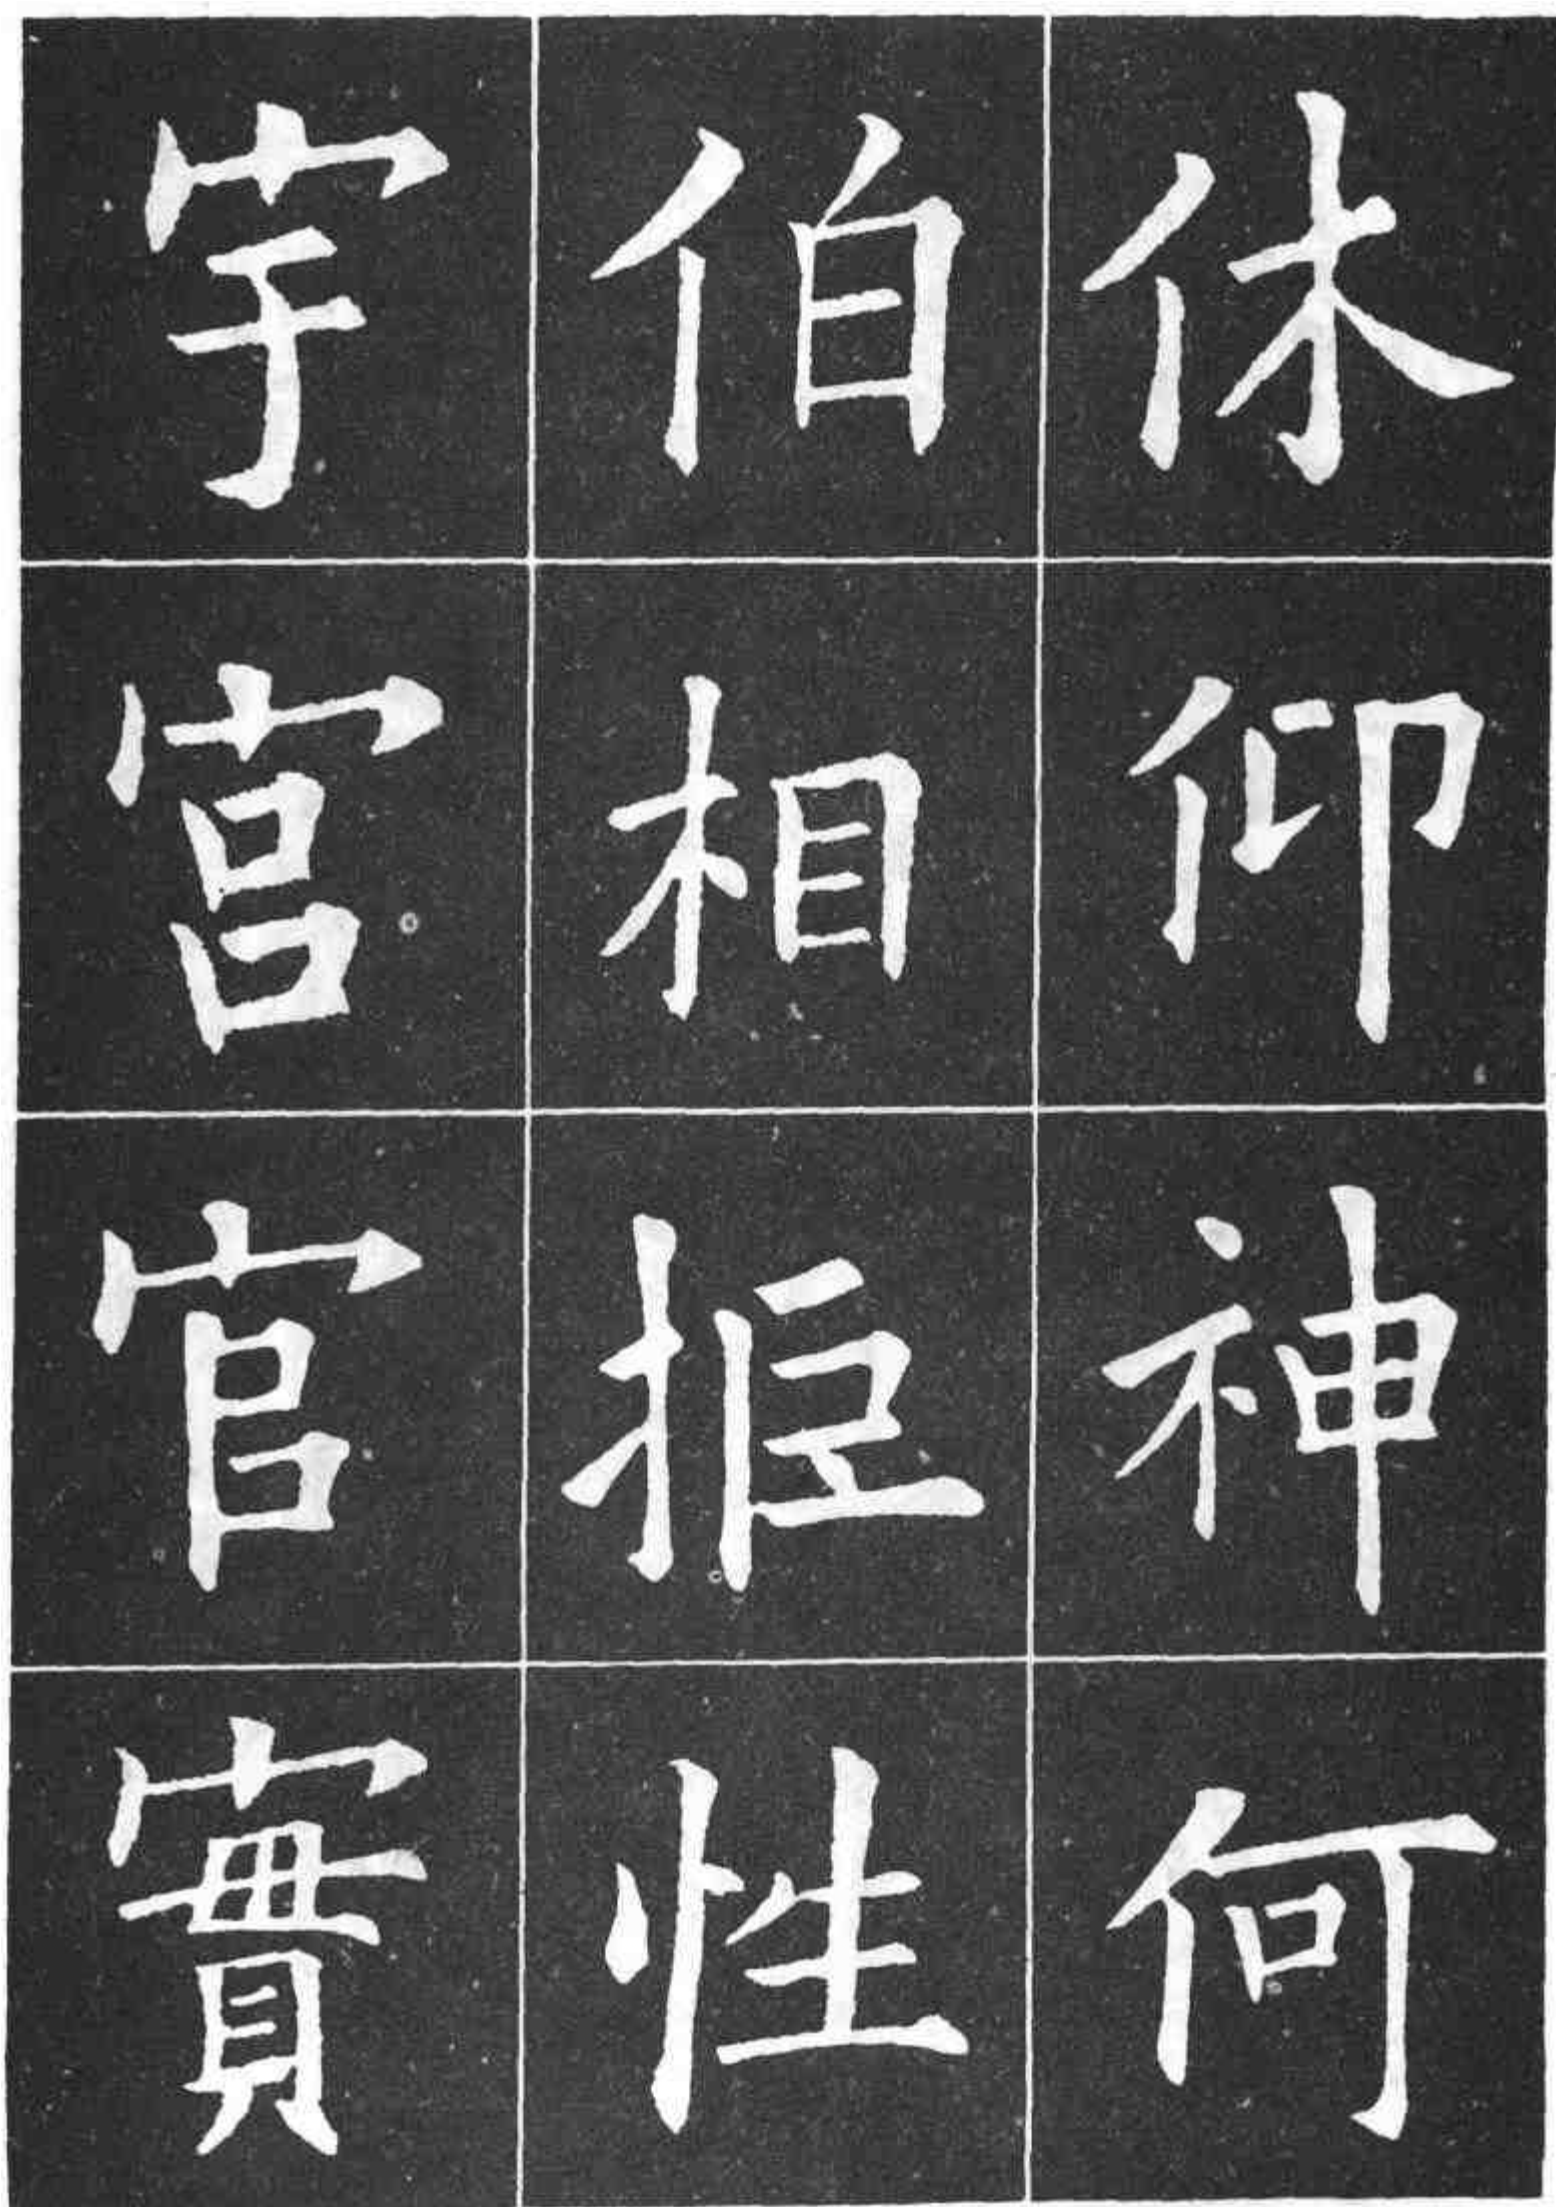 休仰神何
伯相拒性
宇宮官實